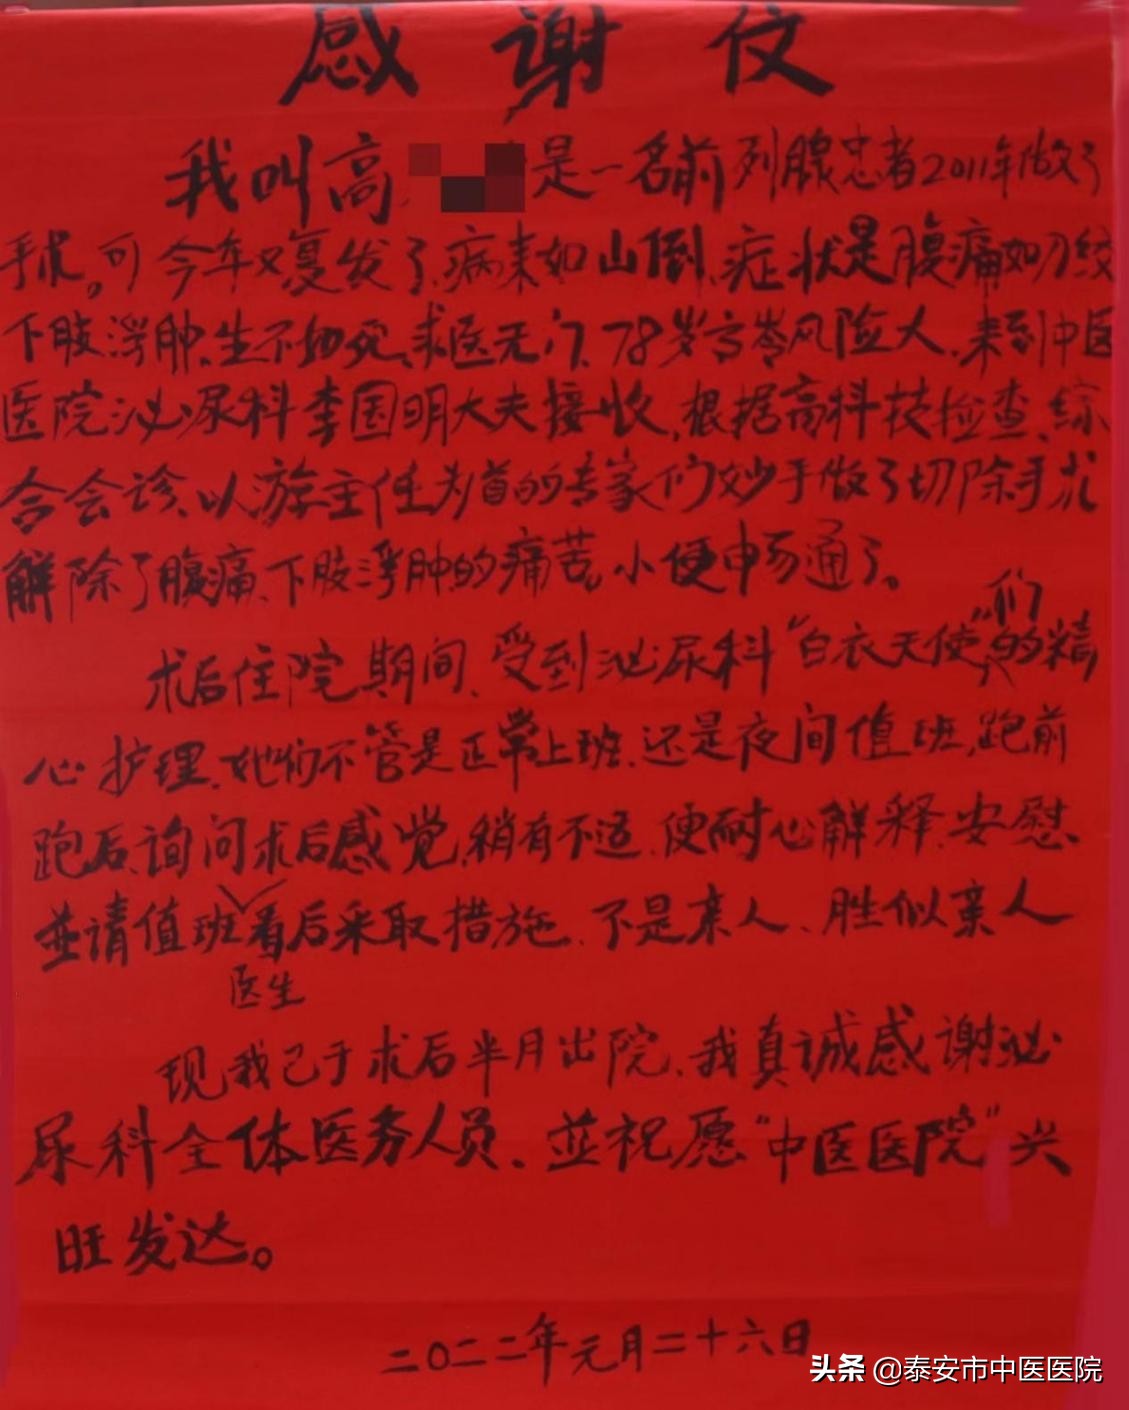 感谢信
我叫高 是一名前列腺患者2011年做了
手术。可今年又复发了,病来如山倒、症状是腹痛如刀绞
下肢浮肿、生不如死、求医无门、78岁高岭风险人、来到中医
医院泌尿科李国明大夫接收,根据高科技检查、综
合会诊、以游主任为首的专家们妙手做了切除手术
解除了腹痛、下肢浮肿的痛苦。小便申畅通了。
术后住院期间、受到泌尿科“白衣天使”们的精
心护理、她们不管是正常上班、还是夜间值班,跑前
跑后、询问术后感觉,稍有不适、便耐心解释、安慰、
並请值班医生看后采取措施、不是亲人、胜似亲人
现我已于术后半月出院、我真诚感谢泌
尿科全体医务人员、並祝愿“中医医院”兴
旺发达。
二〇二二年元月二十六日
头条 @泰安市中医医院